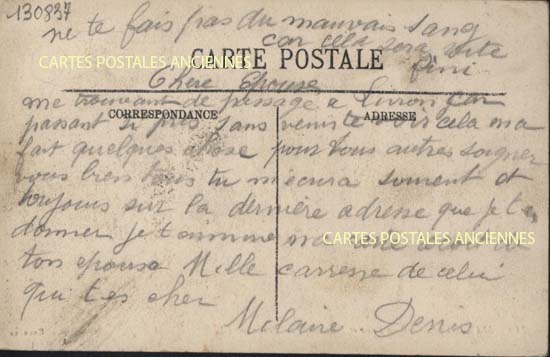 130837
ne te fais pas du mauvais sang
car cela sera vite
CARTE POSTALE
CARTES POSTALES ANCIENNES
fini
Chere Epouse
me trouvant de passage a Livron car
CORRESPONDANCE
ADRESSE
passant si pres sans venir te voir cela ma
fait quelques chose pour vous autres soigner
vous bien tous tu mecrira souvent et
toujours sur la derniere adresse que je t'ai
donner je
CARTES POSTALES ANCIENNES
ton epouse Mille caresse de celui
qui t'es cher
Denis